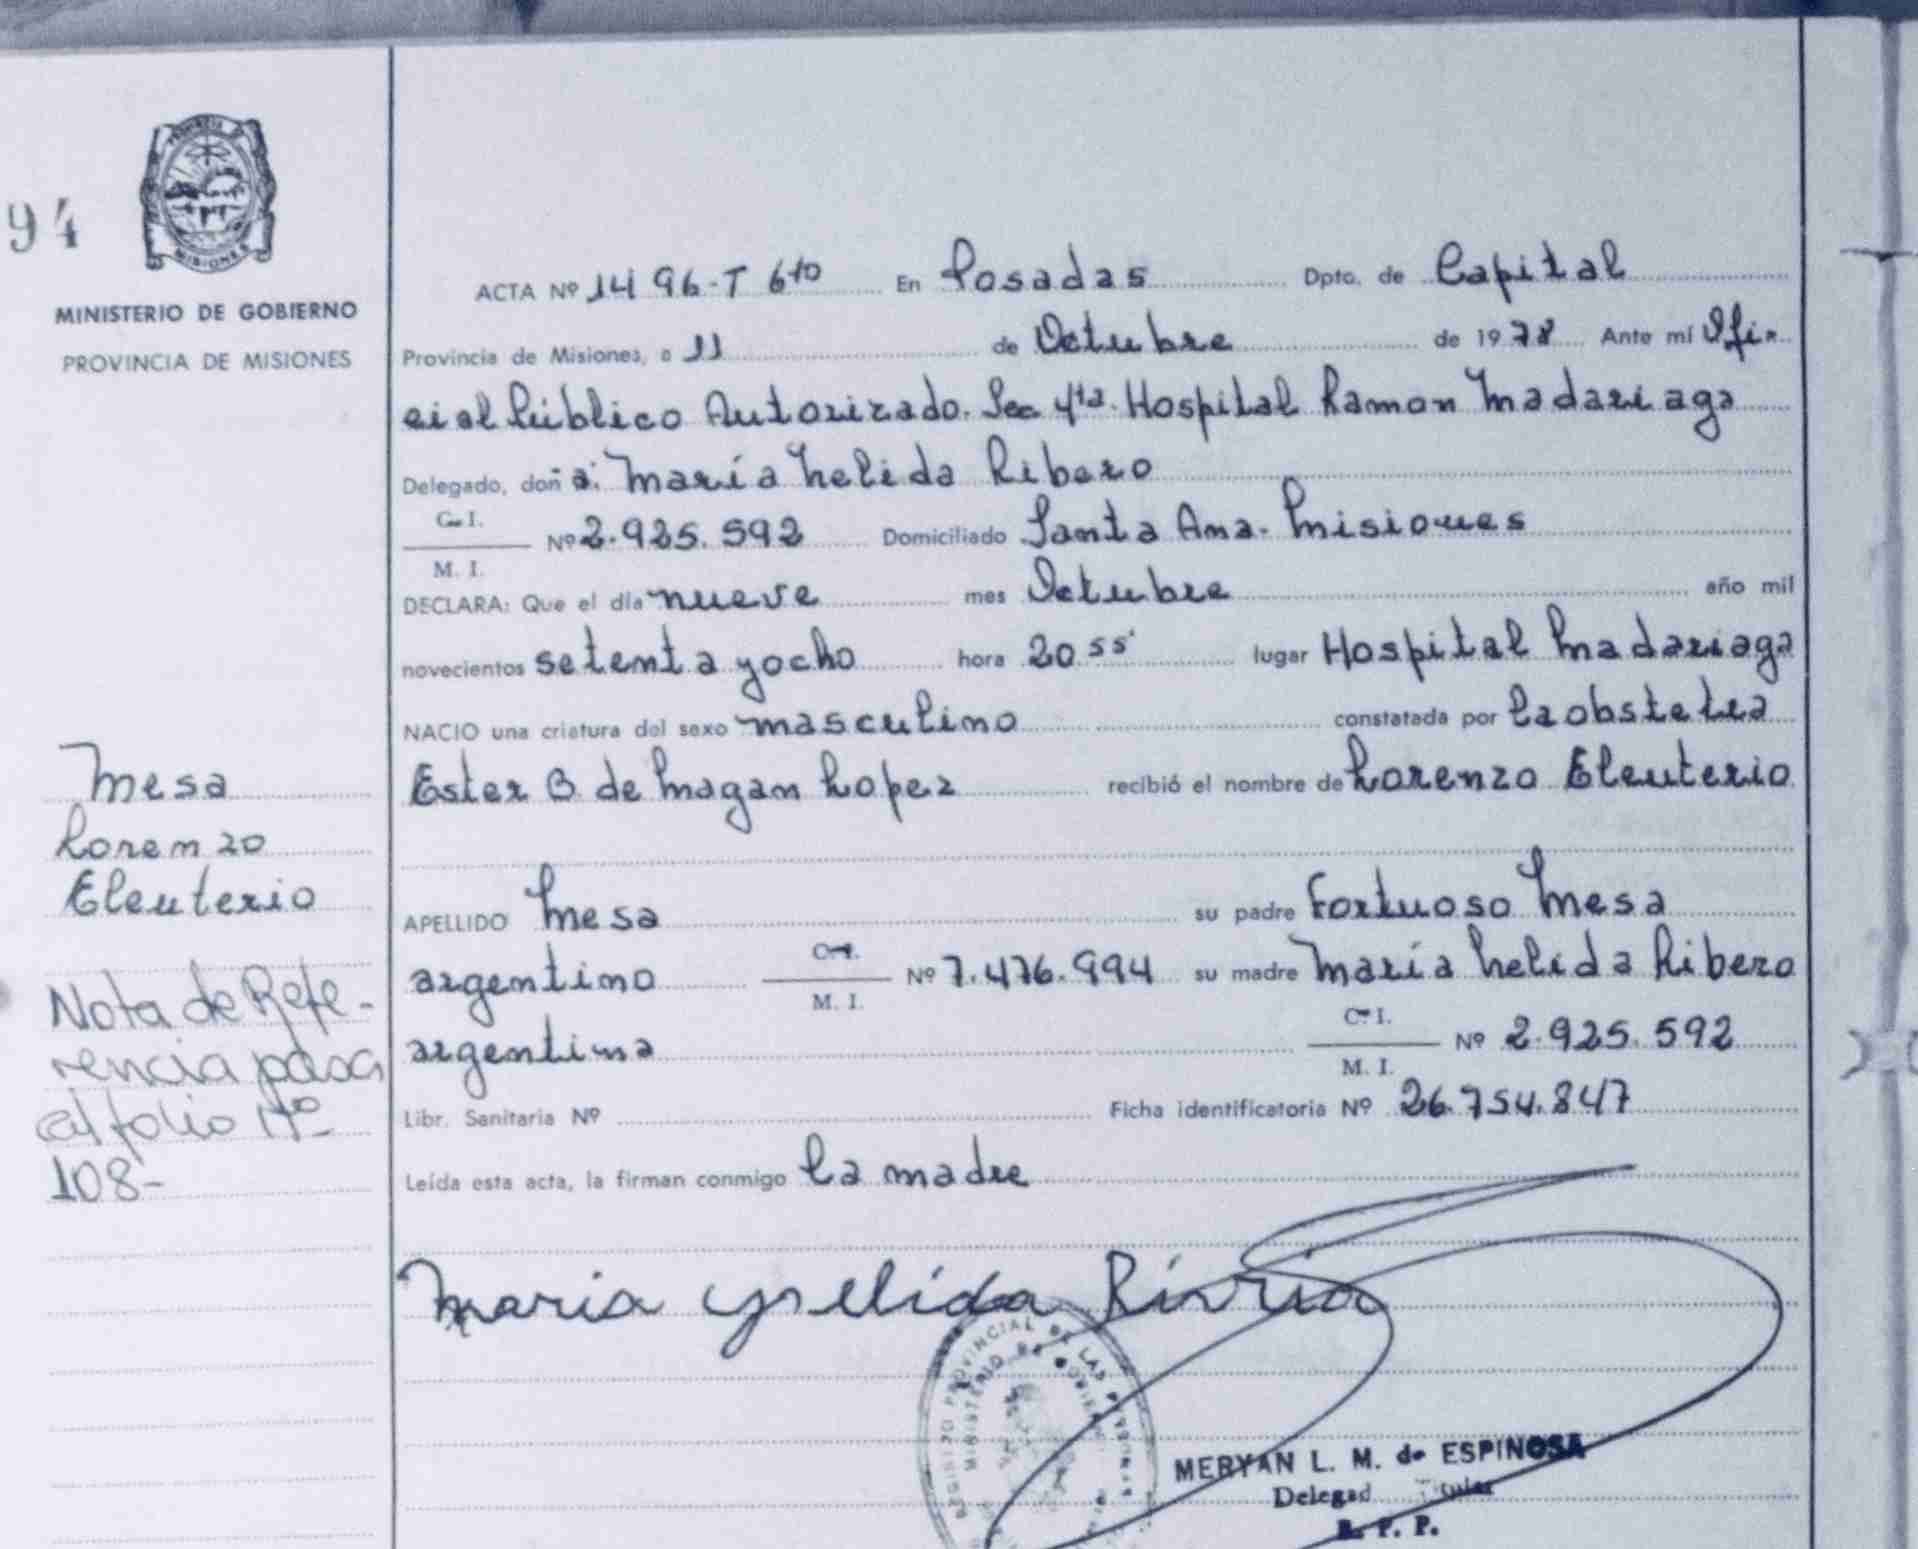 94
PROVINCIA DE
MISIONES
MINISTERIO DE GOBIERNO
PROVINCIA DE MISIONES
ACTA Nº 1496-T 6to En Posadas Dpto. de Capital
Provincia de Misiones, a 11 de Octubre de 1978 Ante mí Ofi-
cial Público Autorizado. Sec 4ta. Hospital Ramon Madariaga
Delegado, doña: María Nelida Ribero
C. I.
M. I.
Nº 2.925.592 Domiciliado Santa Ana - Misiones
DECLARA: Que el día nueve mes Octubre año mil
novecientos setenta y ocho hora 20.55' lugar Hospital Madariaga
NACIO una criatura del sexo masculino constatada por La obstetra
Ester B. de Magan Lopez recibió el nombre de Lorenzo Eleuterio
APELLIDO Mesa su padre Fortuoso Mesa
argentino C. I. M. I. Nº 7.476.994 su madre María Nelida Ribero
argentina C. I. M. I. Nº 2.925.592
Libr. Sanitaria Nº Ficha identificatoria Nº 26.754.847
Leída esta acta, la firman conmigo La madre
Mesa
Lorenzo
Eleuterio
Nota de Refe-
rencia pasa
al folio Nº
108-
Maria
REGISTRO PROVINCIAL DE LAS PERSONAS
MINISTERIO DE GOBIERNO
MERYAN L. M. de ESPINOSA
Delegad
R. P. P.